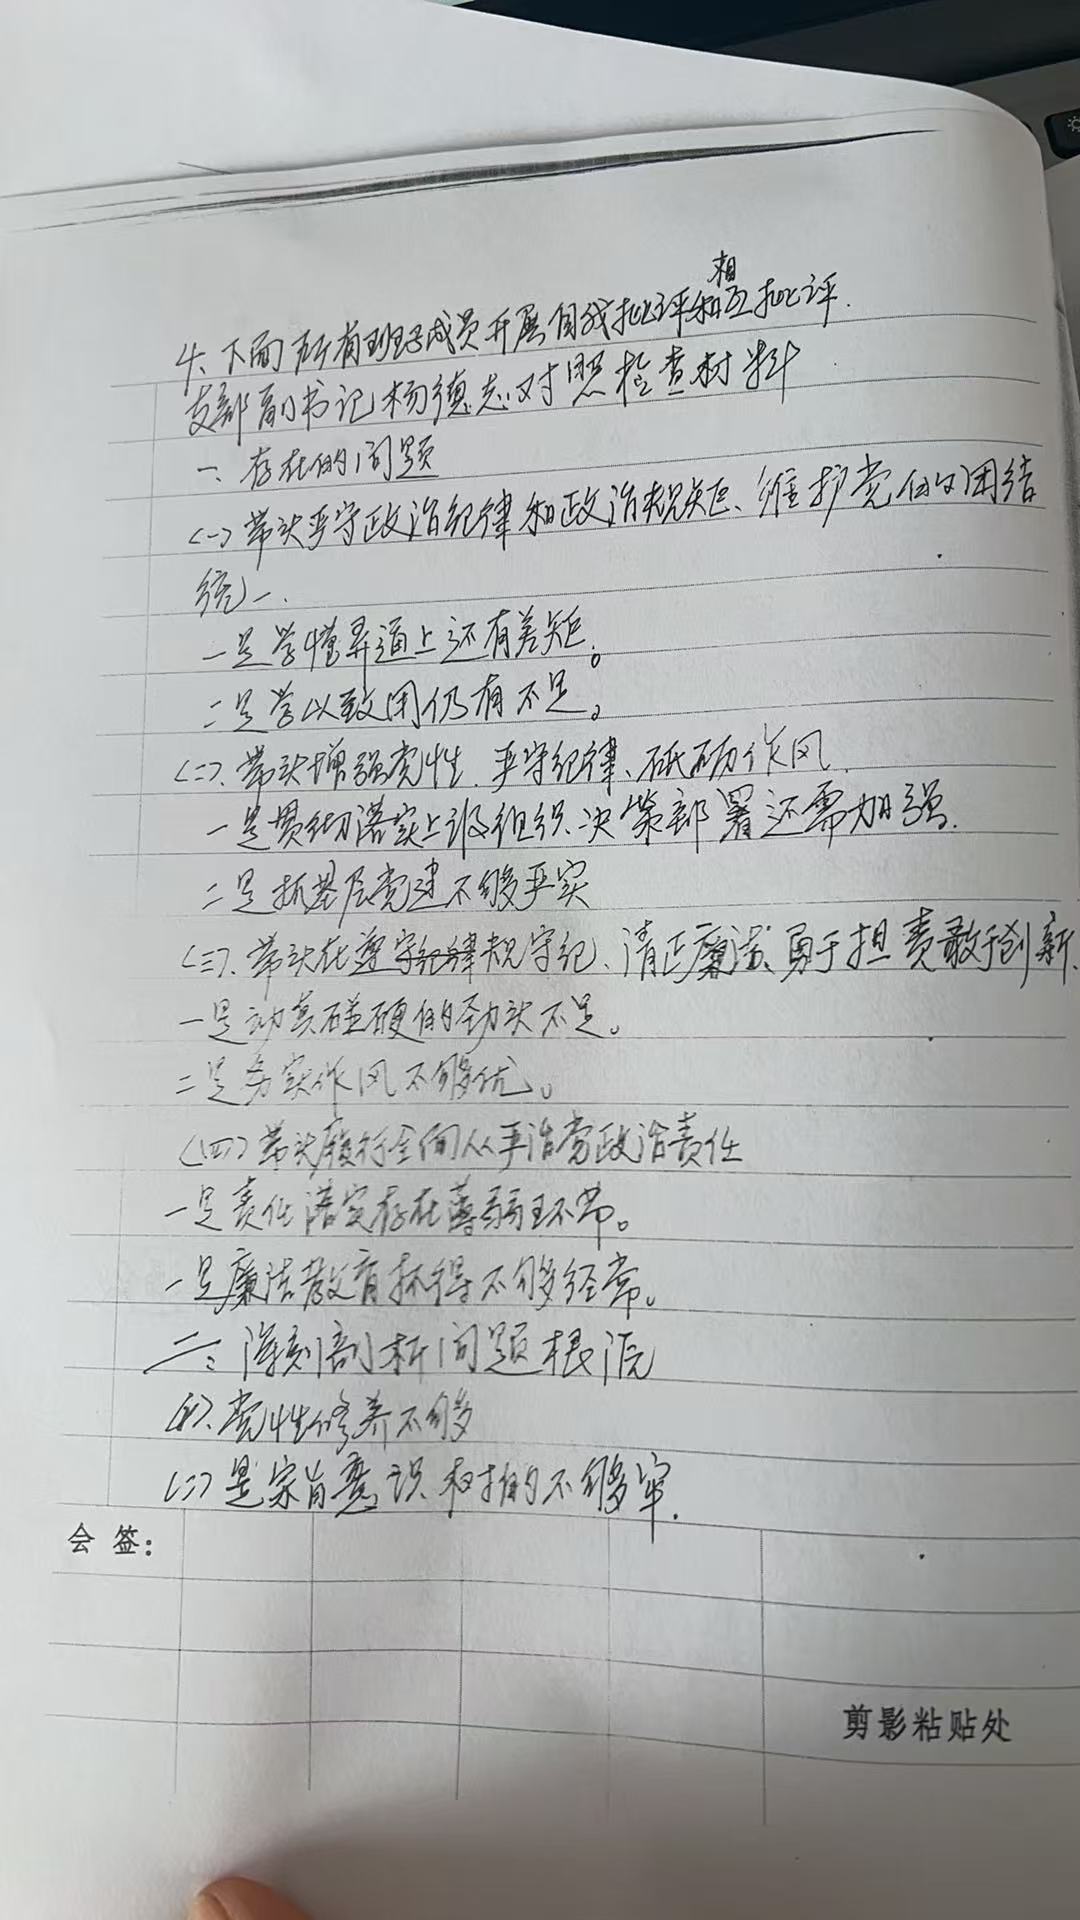 4、下面所有班子成员开展自我批评和相互批评.
支部副书记杨德志对照检查材料
一、存在的问题
(一)带头严守政治纪律和政治规矩、维护党的团结
统一.
一是学懂弄通上还有差矩。
二是学以致用仍有不足。
(二)、带头增强党性、严守纪律、砥砺作风
一是贯彻落实上级组织决策部署还需加强.
二是抓基层党建不够严实
(三)、带头在遵守纪律规守纪、清正廉洁、勇于担责敢于创新、
一是动真碰硬的劲头不足。
二是务实作风不够优。
(四)带头履行全面从严治党政治责任
一是责任落实存在薄弱环节。
一是廉洁教育抓得不够经常。
二、深刻剖析问题根源
(一)、党性修养不够
(二)是宗旨意识树的不够牢.
会 签：
剪影粘贴处